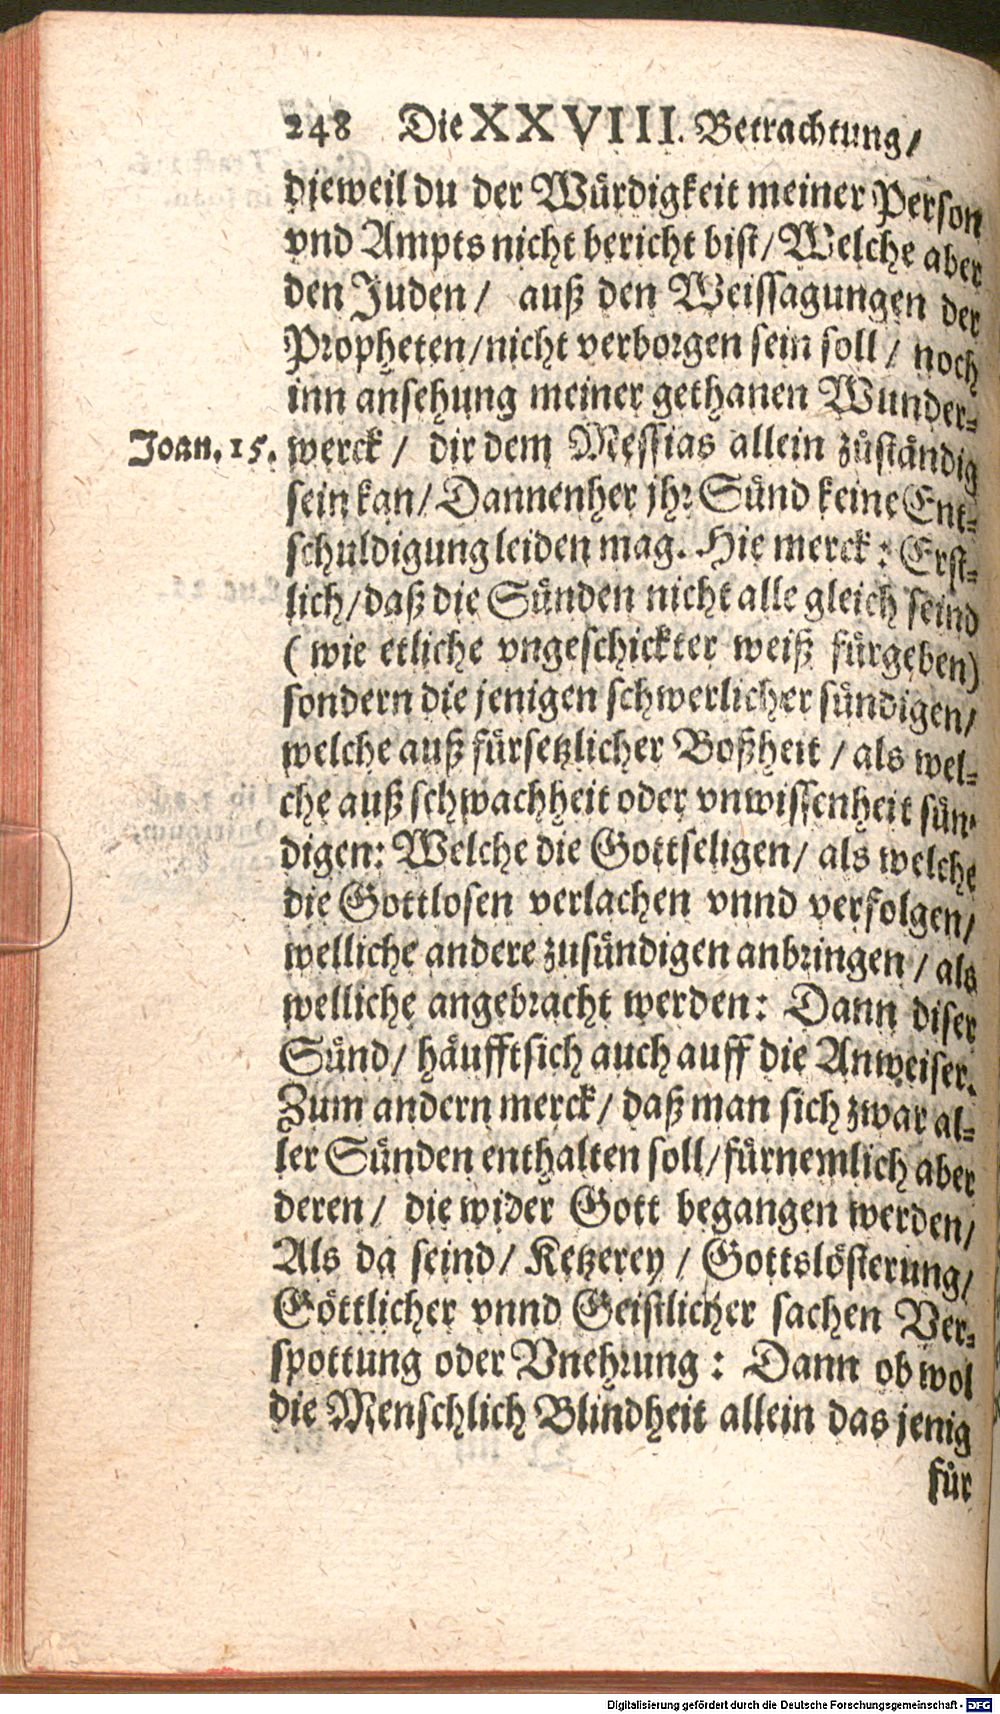 248 Die XXVIII. Betrachtung/
dieweil du der Würdigkeit meiner Person
vnd Ampts nicht bericht bist/ Welche aber
den Juden/ auß den Weissagungen der
Propheten/ nicht verborgen sein soll/ noch
inn ansehung meiner gethanen Wunder-
Joan. 15. werck/ dir dem Messias allein zůständig
sein kan/ Dannenher jhr Sünd keine Ent-
schuldigung leiden mag. Hie merck: Erst-
lich/ daß die Sünden nicht alle gleich seind
(wie etliche vngeschickter weiß fürgeben)
sondern die jenigen schwerlicher sündigen/
welche auß fürsetzlicher Boßheit/ als wel-
che auß schwachheit oder vnwissenheit sün-
digen: Welche die Gottseligen/ als welche
die Gottlosen verlachen vnnd verfolgen/
welliche andere zusündigen anbringen/ als
welliche angebracht werden: Dann diser
Sünd/ häufft sich auch auff die Anweiser.
Zum andern merck/ daß man sich zwar al-
ler Sünden enthalten soll/ fürnemlich aber
deren/ die wider Gott begangen werden/
Als da seind/ Ketzerey/ Gottslösterung/
Göttlicher vnnd Geistlicher sachen Ver-
spottung oder Vnehrung: Dann ob wol
die Menschlich Blindheit allein das jenig
für
Digitalisierung gefördert durch die Deutsche Forschungsgemeinschaft - DFG